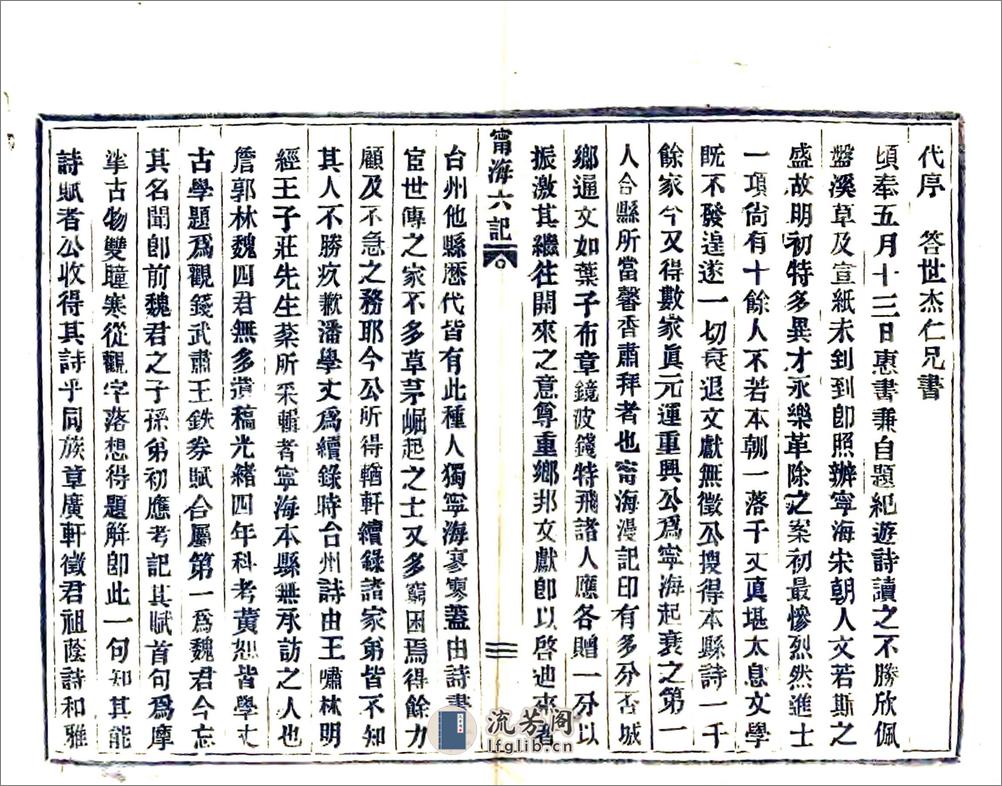 代序　答世杰仁兄書
頃奉五月十三日惠書兼自題紀遊詩讀之不勝欣佩
盤溪草及宣紙未到到卽照辦寧海宋朝人文若斯之
盛故明初特多異才永樂革除之案初最慘烈然進士
一項尙有十餘人不若本朝一落千丈眞堪太息文學
旣不發達遂一切衰退文獻無徵公搜得本縣詩一千
餘家今又得數家眞元運重興公爲寧海起衰之第一
人合縣所當馨香肅拜者也甯海漫記印有多分否城
鄉通文如葉子布章鏡波錢特飛諸人應各贈一分以
振激其繼往開來之意尊重鄉邦文獻卽以啓迪來者
甯海六記
三
台州他縣歷代皆有此種人獨寧海寥寥蓋由詩書
宦世傳之家不多草茅崛起之士又多窮困焉得餘力
顧及不急之務耶今公所得輶軒續錄諸家弟皆不知
其人不勝疚歉潘學丈爲續錄時台州詩由王嘯林明
經王子莊先生棻所采輯者寧海本縣無承訪之人也
詹郭林魏四君無多遺稿光緒四年科考黃恕皆學丈
古學題爲觀錢武肅王鉄券賦合屬第一爲魏君今忘
其名聞卽前魏君之子孫弟初應考記其賦首句爲摩
挲古物雙瞳寒從觀字落想得題解卽此一句知其能
詩賦者公收得其詩乎同族章廣軒徵君祖蔭詩和雅
流芳阁
lfglib.cn